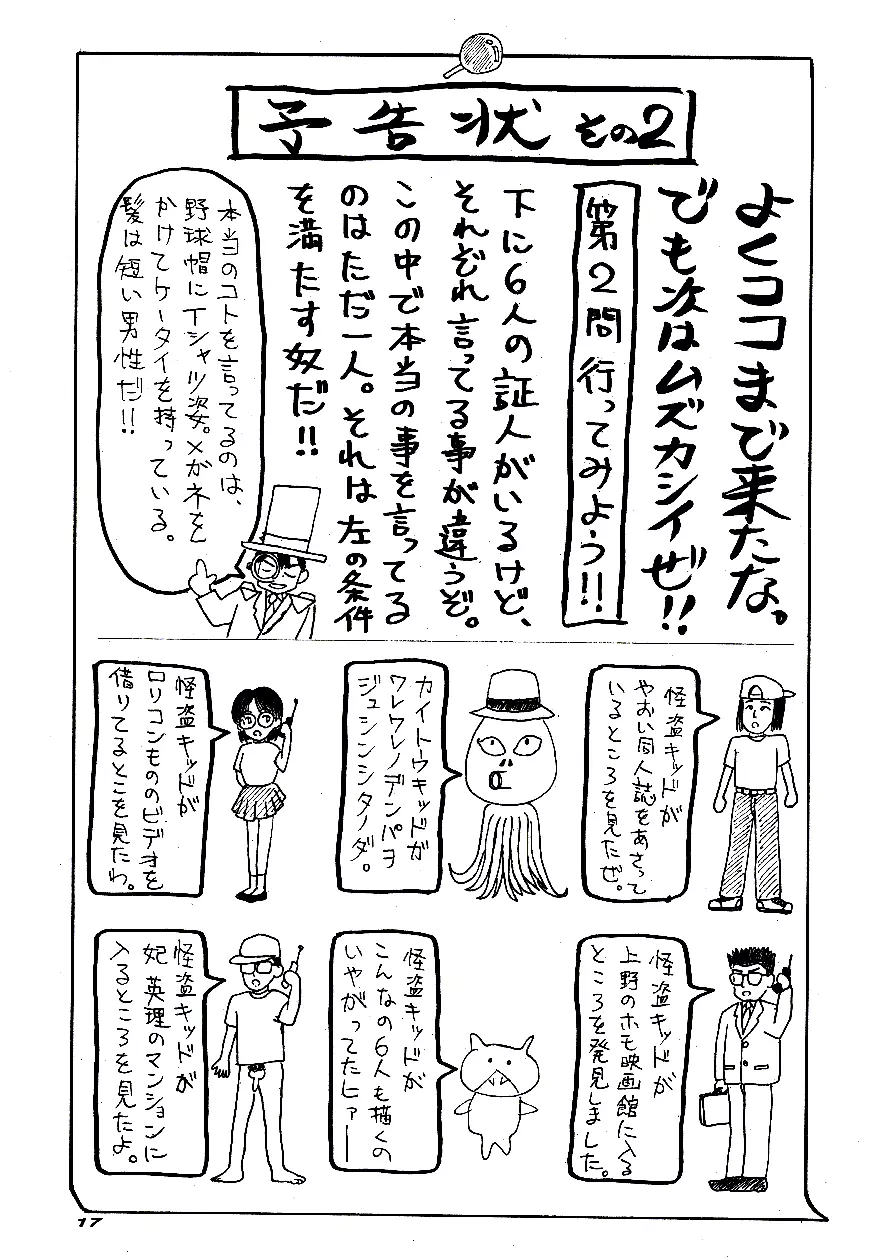 予告状 その2
よくココまで来たな。
でも次はムズカシイぜ!!
第2問 行ってみよう!!
下に6人の証人がいるけど、
それぞれ言ってる事が違うぞ。
この中で本当の事を言ってる
のはただ一人。それは左の条件
を満たす奴だ!!
本当のコトを言ってるのは、
野球帽にTシャツ姿。メガネを
かけてケータイを持っている。
髪は短い男性だ!!
怪盗キッドが
やおい同人誌をあさって
いるところを見たぜ。
カイトウキッドが
ワレワレノデンパヲ
ジュシンシタノダ。
怪盗キッドが
ロリコンもののビデオを
借りてるとこを見たわ。
怪盗キッドが
上野のホモ映画館に入る
ところを発見しました。
怪盗キッドが
こんなの6人も描くの
いやがってたヒァー
怪盗キッドが
妃 英理のマンションに
入るところを見たよ。
17